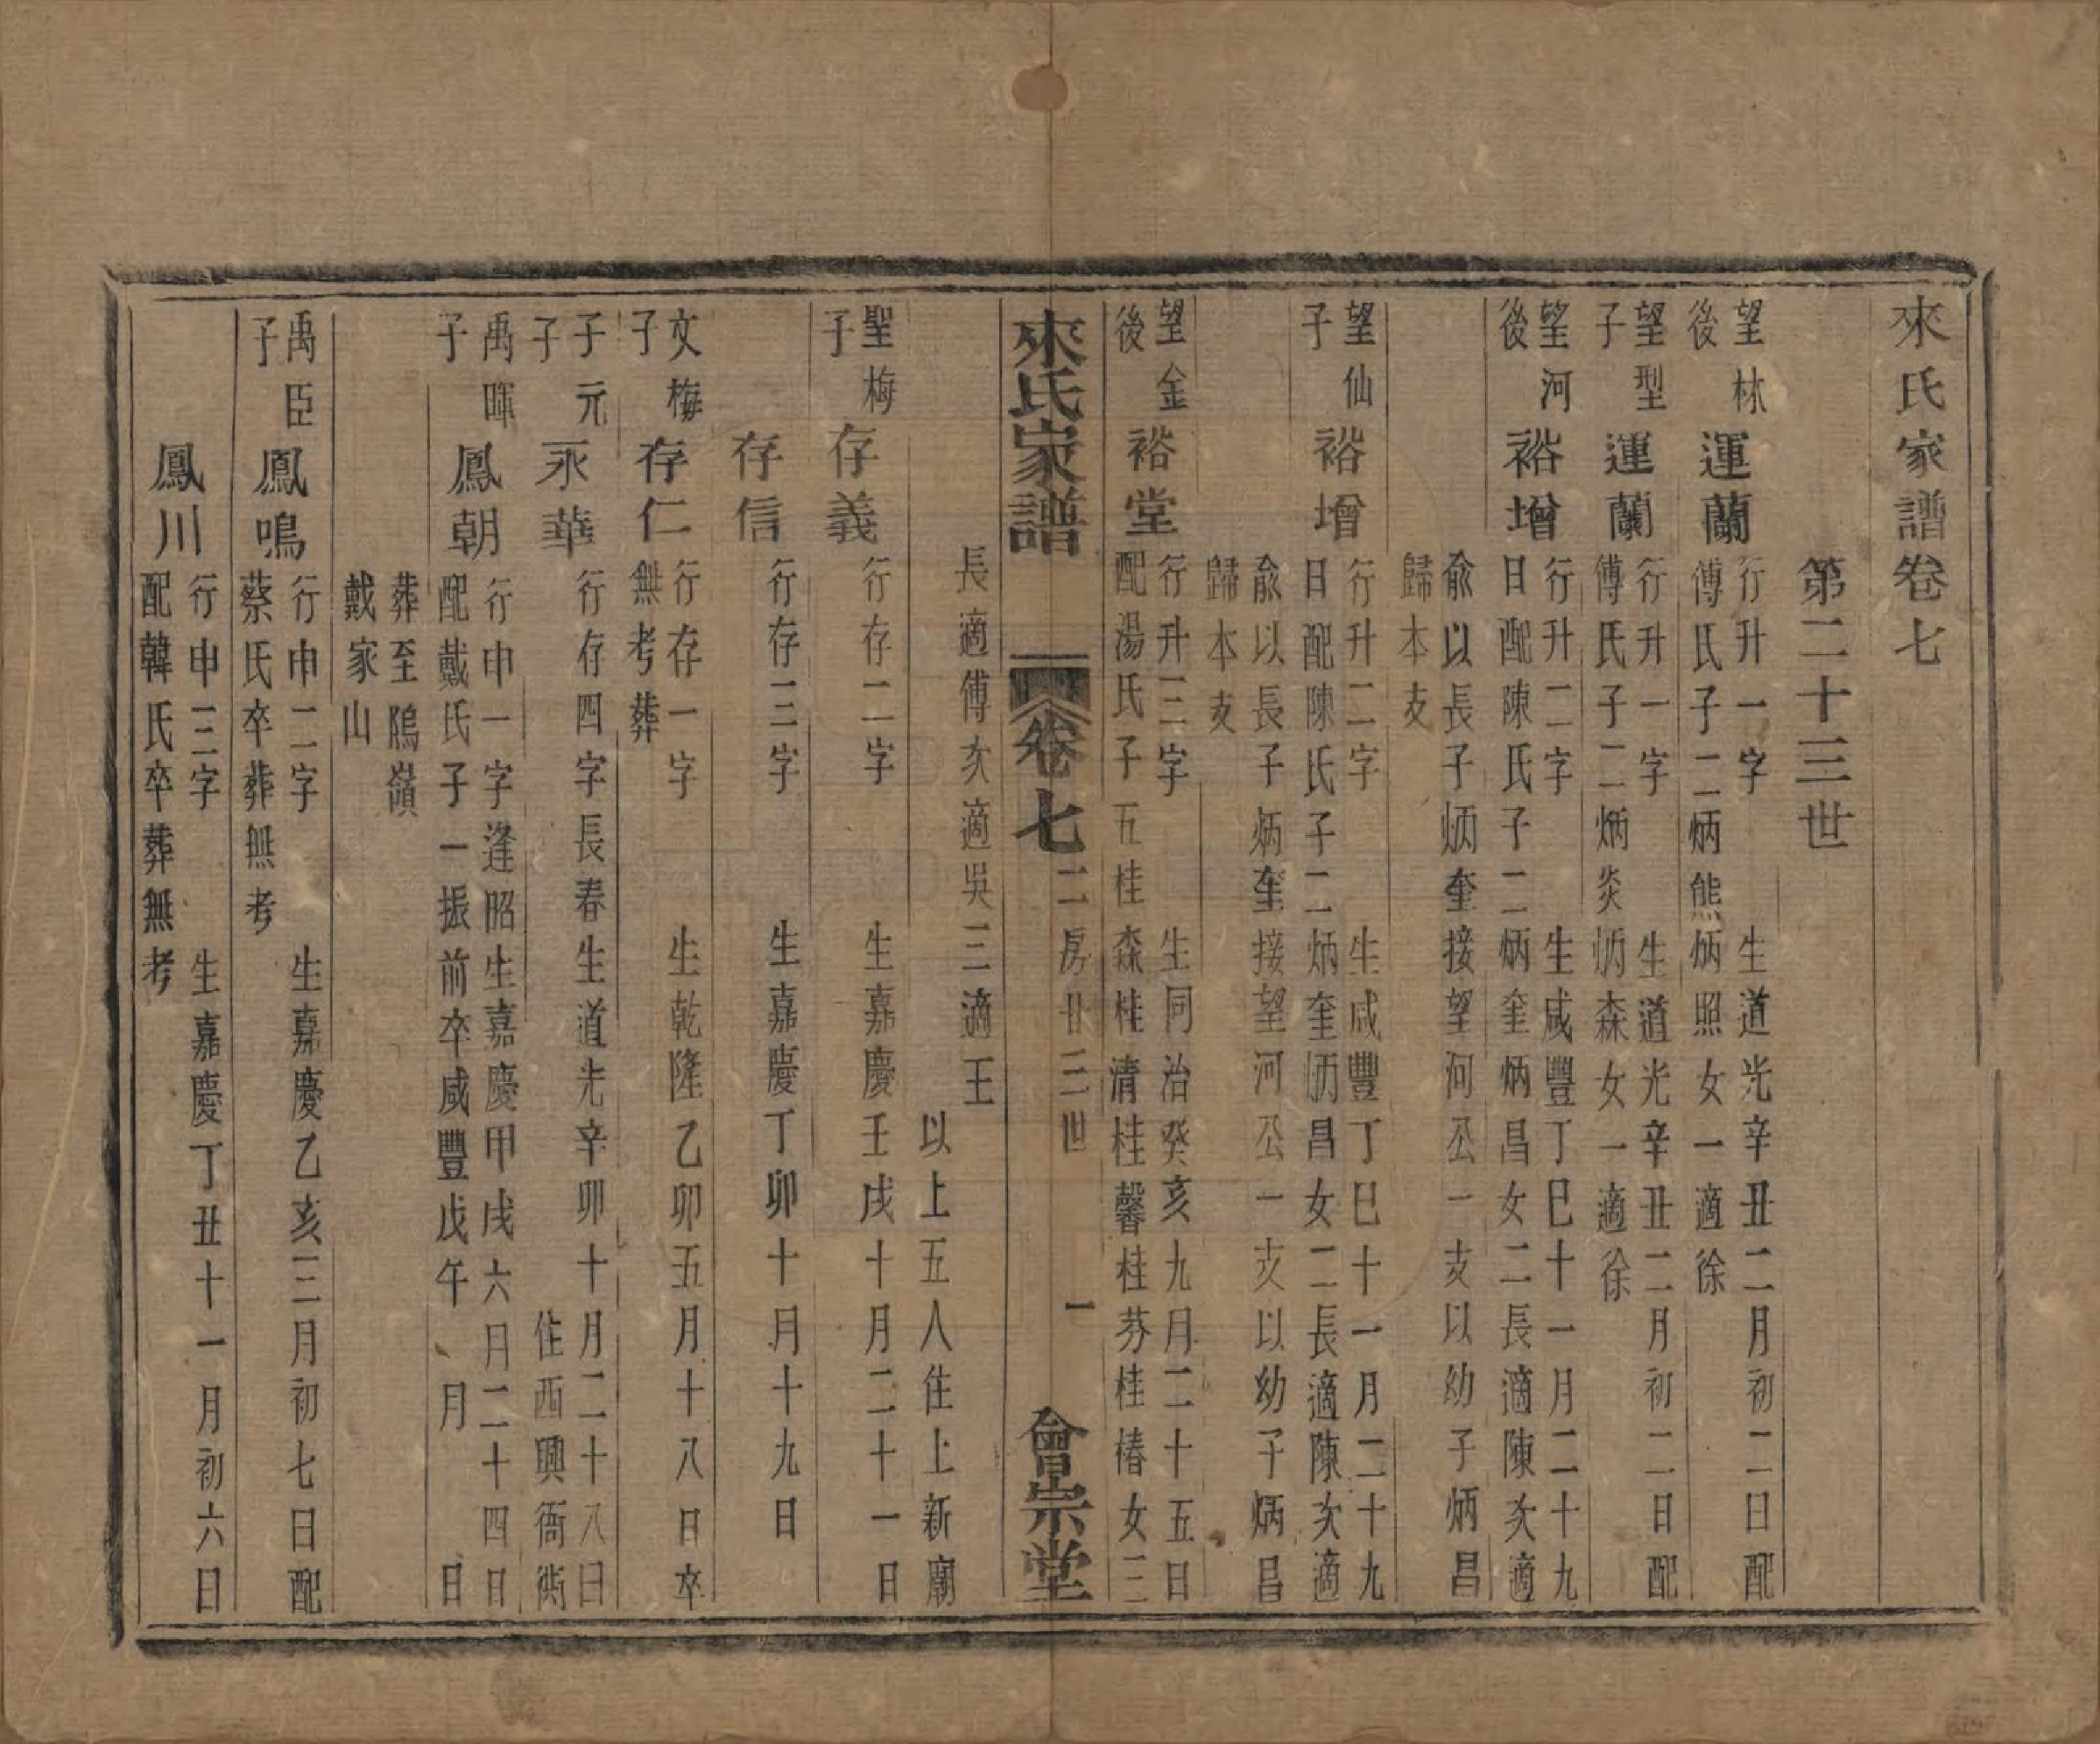 來氏家譜卷七
第二十三世
望林後
運蘭
行升一字　生道光辛丑二月初二日配
傅氏子二炳熊炳照女一適徐
望型子
運蘭
行升一字　生道光辛丑二月初二日配
傅氏子二炳炎炳森女一適徐
望河後
裕增
行升二字　生咸豐丁巳十一月二十九
日配陳氏子二炳奎炳昌女二長適陳次適
俞以長子炳奎接望河公一支以幼子炳昌
歸本支
望仙子
裕增
行升二字　生咸豐丁巳十一月二十九
日配陳氏子二炳奎炳昌女二長適陳次適
俞以長子炳奎接望河公一支以幼子炳昌
歸本支
望金後
裕堂
行升三字　生同治癸亥九月二十五日
配湯氏子五桂森桂清桂馨桂芬桂椿女三
來氏家譜　卷七　二房廿三世　一　會宗堂
長適傅次適吳三適王
以上五人住上新廟
聖梅子
存義
行存二字　生嘉慶壬戌十月二十一日
存信
行存三字　生嘉慶丁卯十月十九日
文梅子
存仁
行存一字　生乾隆乙卯五月十八日卒
無考葬
子元子
永華
行存四字長春生道光辛卯十月二十八日
住西興衙衖
禹暉子
鳳朝
行申一字逢昭生嘉慶甲戌六月二十四日
配戴氏子一振前卒咸豐戊午、月　日
葬至隖嶺
戴家山
禹臣子
鳳鳴
行申二字　生嘉慶乙亥三月初七日配
蔡氏卒葬無考
鳳川
行申三字　生嘉慶丁丑十一月初六日
配韓氏卒葬無考